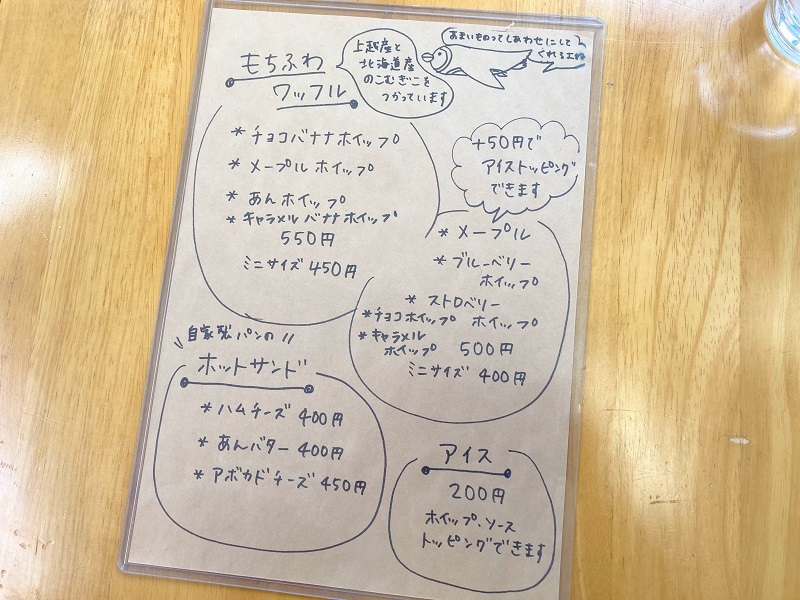 もちふわ
ワッフル
上越産と
北海道産
のこむぎこを
つかっています
あまいものってしあわせにして
くれるよね
* チョコバナナホイップ
* メープルホイップ
* あんホイップ
* キャラメルバナナホイップ
550円
ミニサイズ 450円
+50円で
アイストッピング
できます
* メープル
* ブルーベリー
ホイップ
* ストロベリー
ホイップ
* チョコホイップ
* キャラメル
ホイップ
500円
ミニサイズ 400円
自家製パンの
ホットサンド
* ハムチーズ 400円
* あんバター 400円
* アボカドチーズ 450円
アイス
200円
ホイップ・ソース
トッピングできます